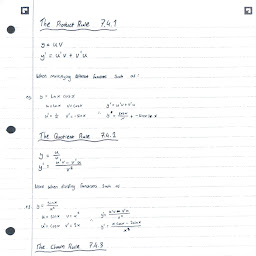 The Product Rule 7.4.1
y = uv
y' = u'v + v'u
When multiplying different functions such as:
eg. y = lnx cosx
u = lnx v = cosx y' = u'v + v'u
The Quotient Rule 7.4.2
y = u/v
y' = u'v - v'u / v²
Used when dividing functions such as
eg. y = sinx / x²
u = sinx v = x²
u' = cosx v' = 2x
The Chain Rule 7.4.3